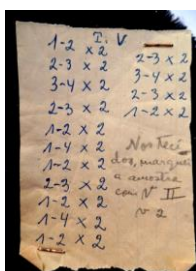 T. V
1-2 x 2
2-3 x 2
3-4 x 2
2-3 x 2
1-2 x 2
1-4 x 2
1-2 x 2
2-3 x 2
1-2 x 2
1-4 x 2
1-2 x 2
2-3 x 2
3-4 x 2
2-3 x 2
1-2 x 2
Nos teci
dos, marquei
a amostra
com Nº II
nº 2